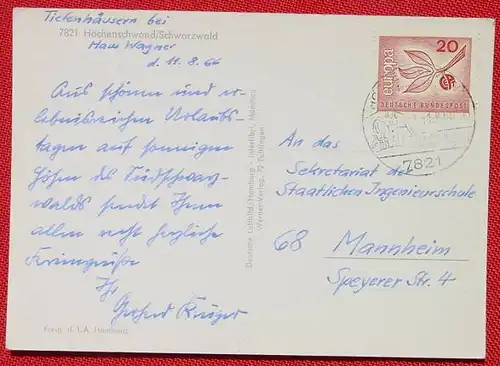 Tiefenhäusern bei
7821 Höchenschwand/Schwarzwald
Haus Wagner
d. 11.8.66
Aus schönen und er-
lebnisreichen Urlaubs-
tagen auf sonnigen
Höhen des Südschwarz-
walds sendet Ihnen
allen recht herzliche
Feriengrüße
Ihr
Gerhard Krüger
Freig. d. L.A. Hamburg
Deutsche Luftbild, Hamburg
Werner-Verlag, 72 Tuttlingen
europa
20
DEUTSCHE BUNDESPOST
7821
An das
Sekretariat der
Staatlichen Ingenieurschule
68 Mannheim
Speyerer Str. 4